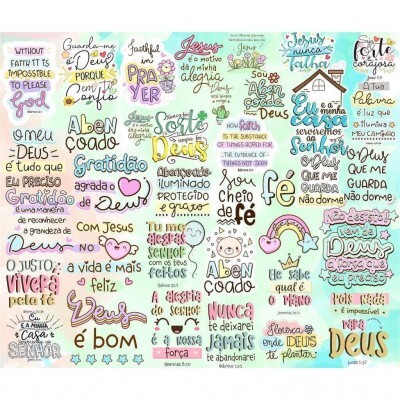 WITHOUT
FAITH IT IS
IMPOSSIBLE
TO PLEASE
God
Guarda-me
ó Deus
PORQUE
em ti
confio
Faithful
in
PRAYER
Jesus
é o motivo
da minha
alegria
Sou
de
Deus
Jesus
nunca
falha
forte
corajosa
Eu
e a
minha
casa
serviremos
ao
Senhor
A Tua
Palavra
é luz que
ilumina
MEU CAMINHO
O meu
DEUS
é tudo que
EU PRECISO
Aben
çoado
Sorte
Deus
NOW faith
IS THE SUBSTANCE
OF THINGS HOPED FOR
THE EVIDENCE OF
THINGS NOT SEEN
Gratidão
agrada o
coração
de
Deus
Abençoado
ILUMINADO
PROTEGIDO
e grato
Sou
cheio
de
fé
fé
O Deus
QUE ME
GUARDA
Não dorme
O Deus
QUE ME
GUARDA
Não dorme
Gratidão
é uma maneira
de reconhecer
a grandeza de
Deus
Com Jesus
NO
a vida é mais
feliz
Tu me
alegras
SENHOR
com os teus
feitos
Aben
çoado
Não desista!
vem de
Deus
que
eu preciso
O JUSTO
viverá
pela fé
He sabe
qual é
o plano
EU
E A MINHA
Casa
SENHOR
Deus
é bom
A alegria
do Senhor
é a nossa
força
Nunca
te deixarei
Jamais
te abandonarei
Floresça
onde
DEUS
te
plantar
POIS NADA
É impossível
PARA
DEUS
Lucas 1:37